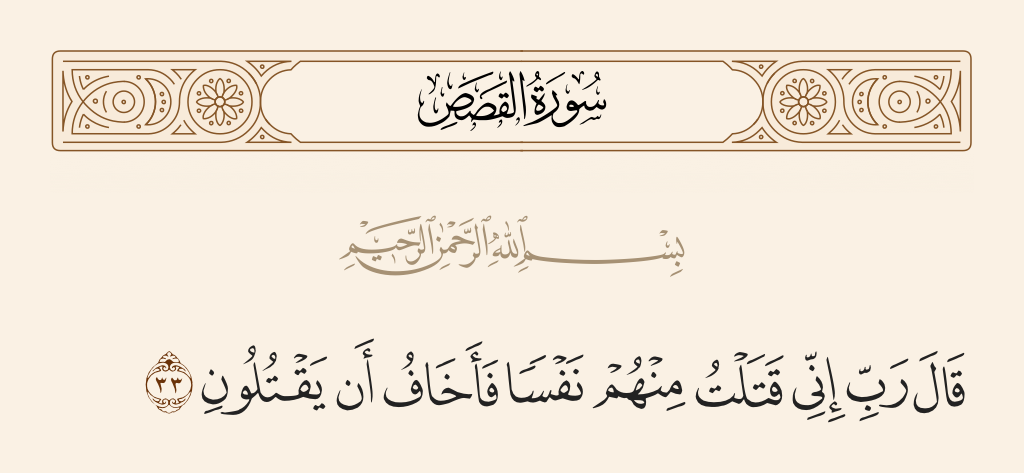 سُورَةُ القَصَصِ
بِسْمِ ٱللَّهِ ٱلرَّحْمَٰنِ ٱلرَّحِيمِ
قَالَ رَبِّ إِنِّي قَتَلْتُ مِنْهُمْ نَفْسًا فَأَخَافُ أَن يَقْتُلُونِ ٣٣